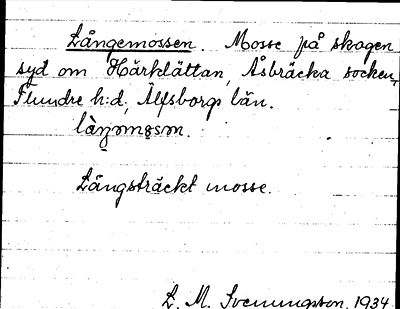 Långemossen. Mosse på skogen
syd om Härklättan, Åsbräcka socken,
Flundre h:d, Älfsborgs län.
Långsträckt mosse.
L. M. Svenungsson, 1934